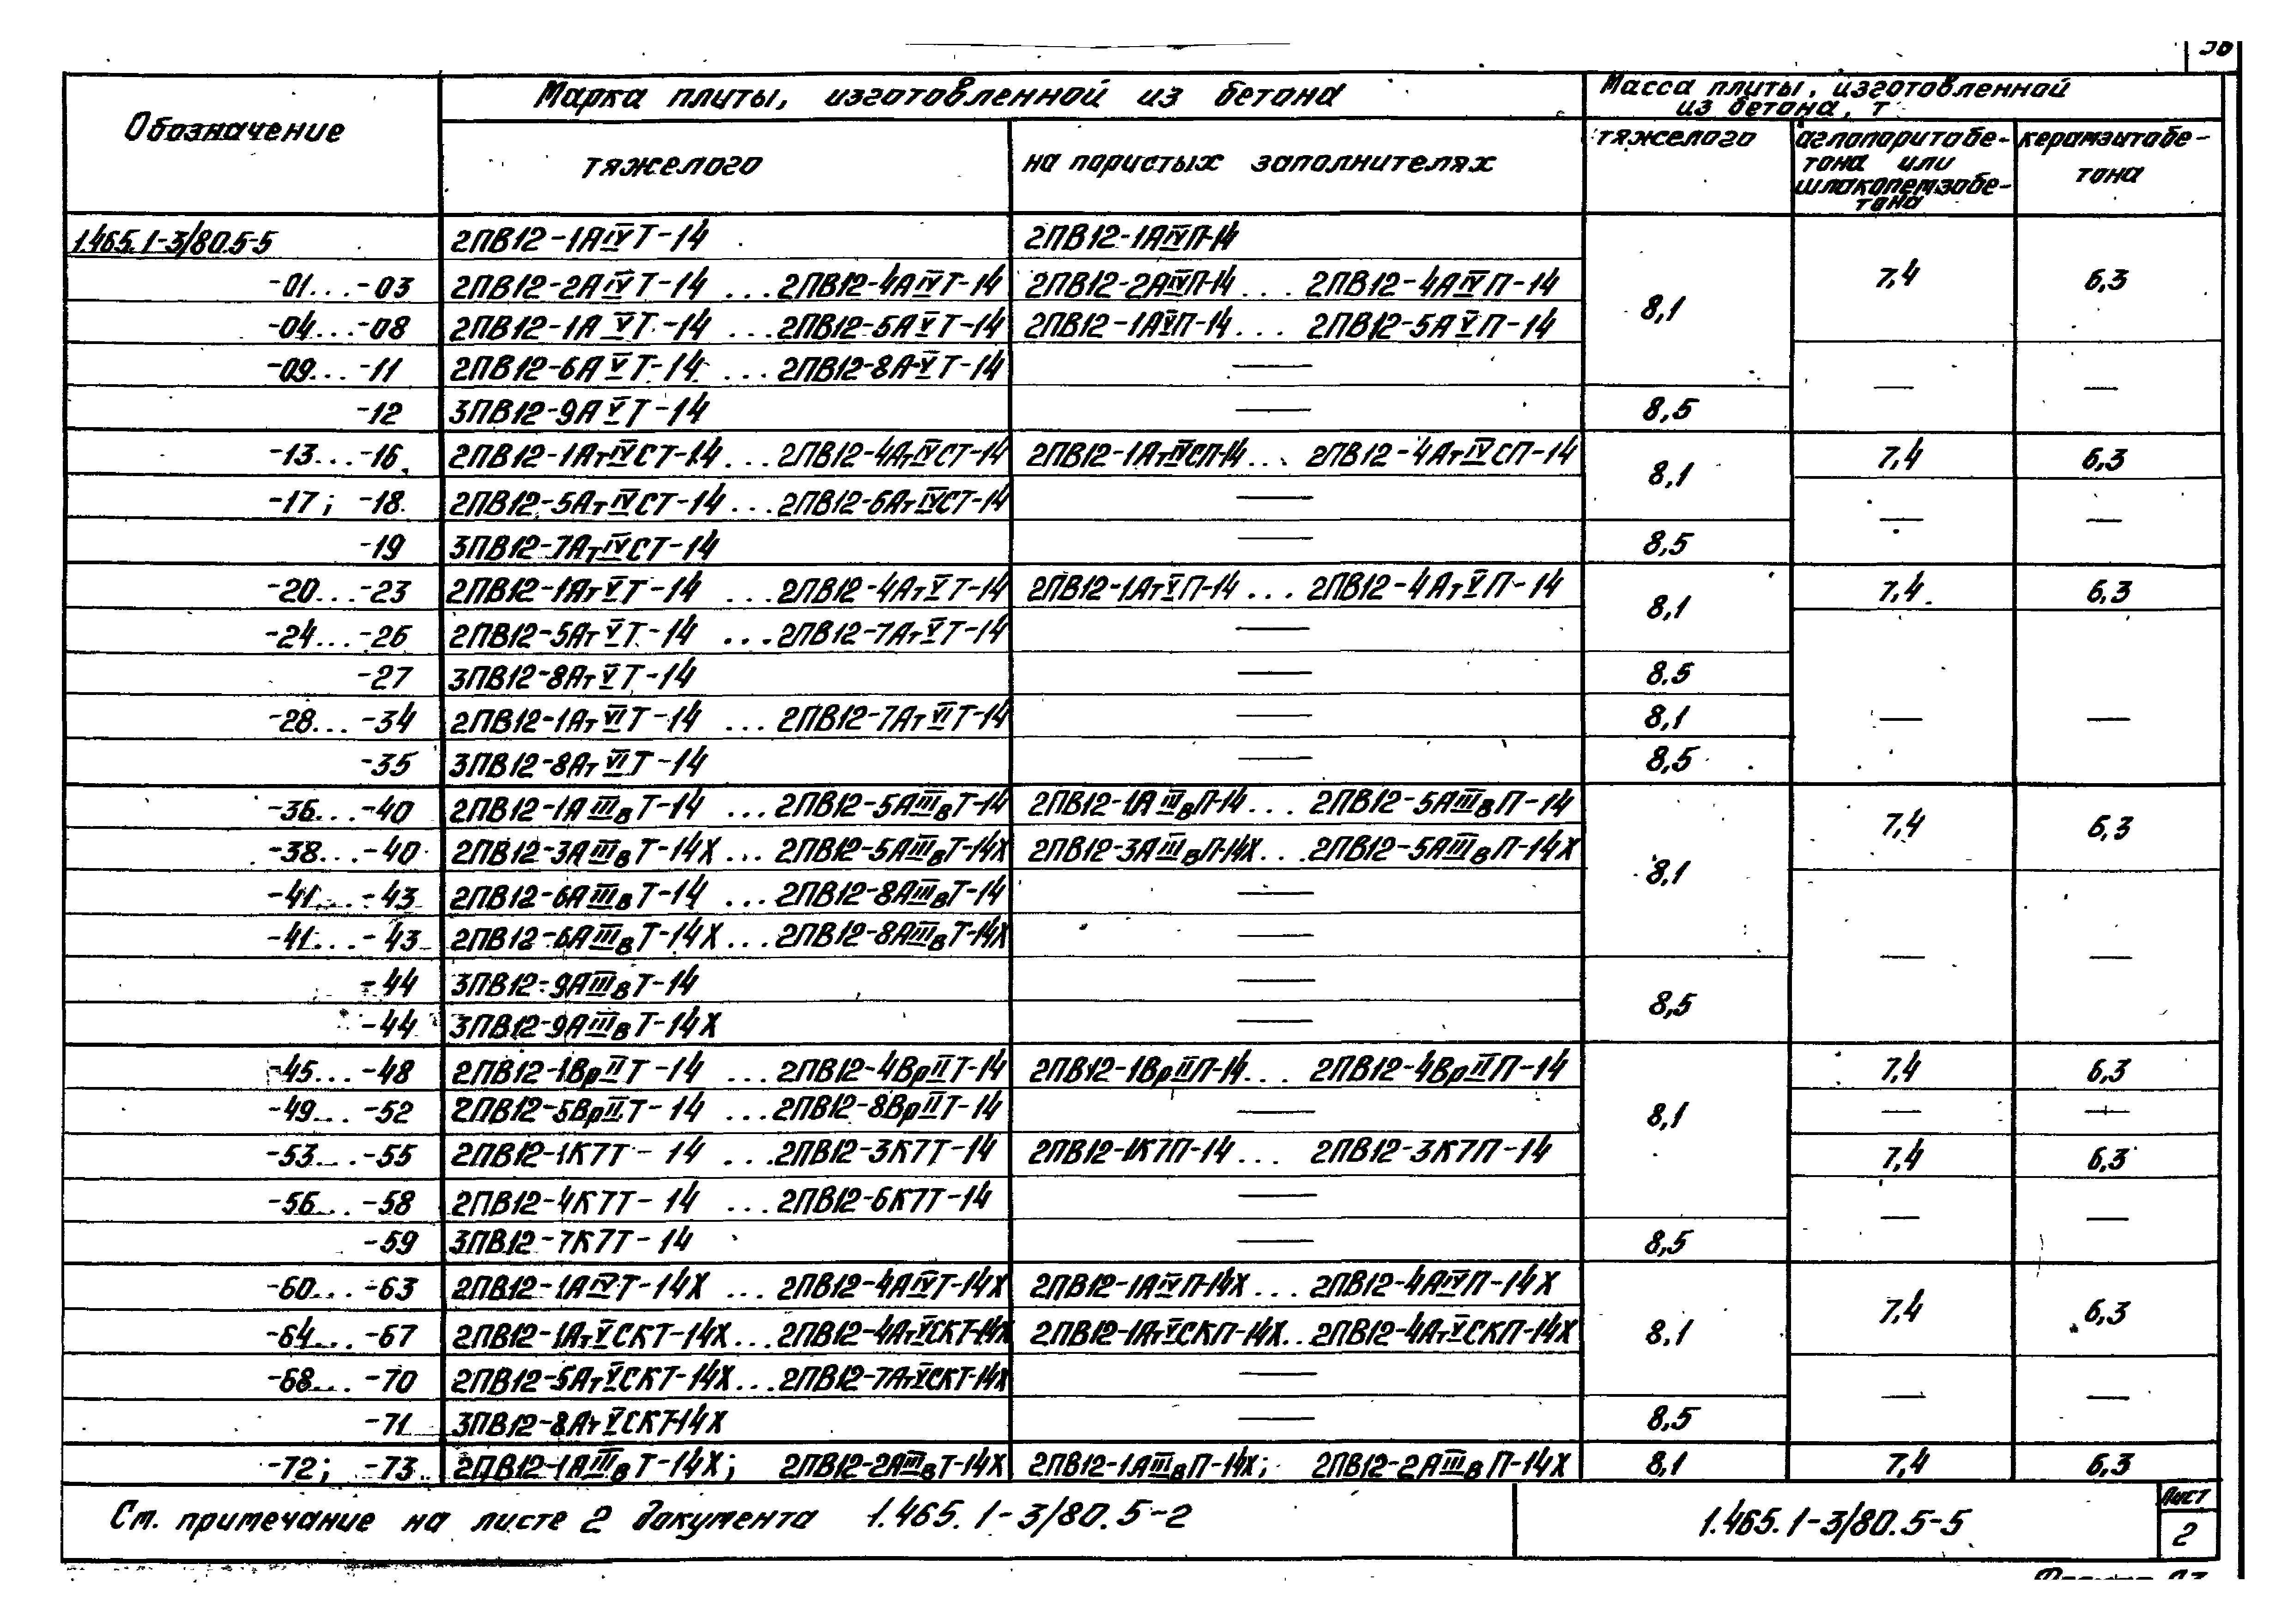 Обозначение
Марка плиты, изготовленной из бетона
Масса плиты, изготовленной
из бетона, т
тяжелого
на пористых заполнителях
тяжелого
аглопоритобе-
тона или
шлакопемзобе-
тона
керамзитобе-
тона
1.465.1-3/80.5-5 2ПВ12-1АIVТ-14 2ПВ12-1АIVП-14
-01...-03 2ПВ12-2АIVТ-14 ...2ПВ12-4АIVТ-14 2ПВ12-2АIVП-14... 2ПВ12-4АIVП-14 8,1 7,4 6,3
-04...-08 2ПВ12-1АVТ-14 ...2ПВ12-5АVТ-14 2ПВ12-1АVП-14... 2ПВ12-5АVП-14
-09...-11 2ПВ12-6АVТ-14 ...2ПВ12-8АVТ-14 — — —
-12 3ПВ12-9АVТ-14 — 8,5
-13...-16 2ПВ12-1АтIVСТ-14...2ПВ12-4АтIVСТ-14 2ПВ12-1АтIVСП-14... 2ПВ12-4АтIVСП-14 8,1 7,4 6,3
-17; -18 2ПВ12-5АтIVСТ-14...2ПВ12-6АтIVСТ-14 — — —
-19 3ПВ12-7АтIVСТ-14 — 8,5
-20...-23 2ПВ12-1АтVТ-14 ...2ПВ12-4АтVТ-14 2ПВ12-1АтVП-14... 2ПВ12-4АтVП-14 8,1 7,4 6,3
-24...-26 2ПВ12-5АтVТ-14 ...2ПВ12-7АтVТ-14 —
-27 3ПВ12-8АтVТ-14 — 8,5
-28...-34 2ПВ12-1АтVIТ-14 ...2ПВ12-7АтVIТ-14 — 8,1 — —
-35 3ПВ12-8АтVIТ-14 — 8,5
-36...-40 2ПВ12-1АIIIвТ-14 ...2ПВ12-5АIIIвТ-14 2ПВ12-1АIIIвП-14... 2ПВ12-5АIIIвП-14 8,1 7,4 6,3
-38...-40 2ПВ12-3АIIIвТ-14Х... 2ПВ12-5АIIIвТ-14Х 2ПВ12-3АIIIвП-14Х...2ПВ12-5АIIIвП-14Х
-41...-43 2ПВ12-6АIIIвТ-14 ...2ПВ12-8АIIIвТ-14 —
-41...-43 2ПВ12-6АIIIвТ-14Х...2ПВ12-8АIIIвТ-14Х — — —
-44 3ПВ12-9АIIIвТ-14 — 8,5
-44 3ПВ12-9АIIIвТ-14Х —
-45...-48 2ПВ12-1ВрIIТ-14 ...2ПВ12-4ВрIIТ-14 2ПВ12-1ВрIIП-14... 2ПВ12-4ВрIIП-14 8,1 7,4 6,3
-49...-52 2ПВ12-5ВрIIТ-14 ...2ПВ12-8ВрIIТ-14 — — —
-53...-55 2ПВ12-1К7Т-14 ...2ПВ12-3К7Т-14 2ПВ12-1К7П-14... 2ПВ12-3К7П-14 7,4 6,3
-56...-58 2ПВ12-4К7Т-14 ...2ПВ12-6К7Т-14 — — —
-59 3ПВ12-7К7Т-14 — 8,5
-60...-63 2ПВ12-1АIVТ-14Х ...2ПВ12-4АIVТ-14Х 2ПВ12-1АIVП-14Х... 2ПВ12-4АIVП-14Х 8,1 7,4 6,3
-64...-67 2ПВ12-1АтVСКТ-14Х...2ПВ12-4АтVСКТ-14Х 2ПВ12-1АтVСКП-14Х...2ПВ12-4АтVСКП-14Х
-68...-70 2ПВ12-5АтVСКТ-14Х...2ПВ12-7АтVСКТ-14Х — — —
-71 3ПВ12-8АтVСКТ-14Х — 8,5
-72; -73 2ПВ12-1АIIIвТ-14Х; 2ПВ12-2АIIIвТ-14Х 2ПВ12-1АIIIвП-14Х; 2ПВ12-2АIIIвП-14Х 8,1 7,4 6,3
См. примечание на листе 2 документа 1.465.1-3/80.5-2
1.465.1-3/80.5-5
Лист
2